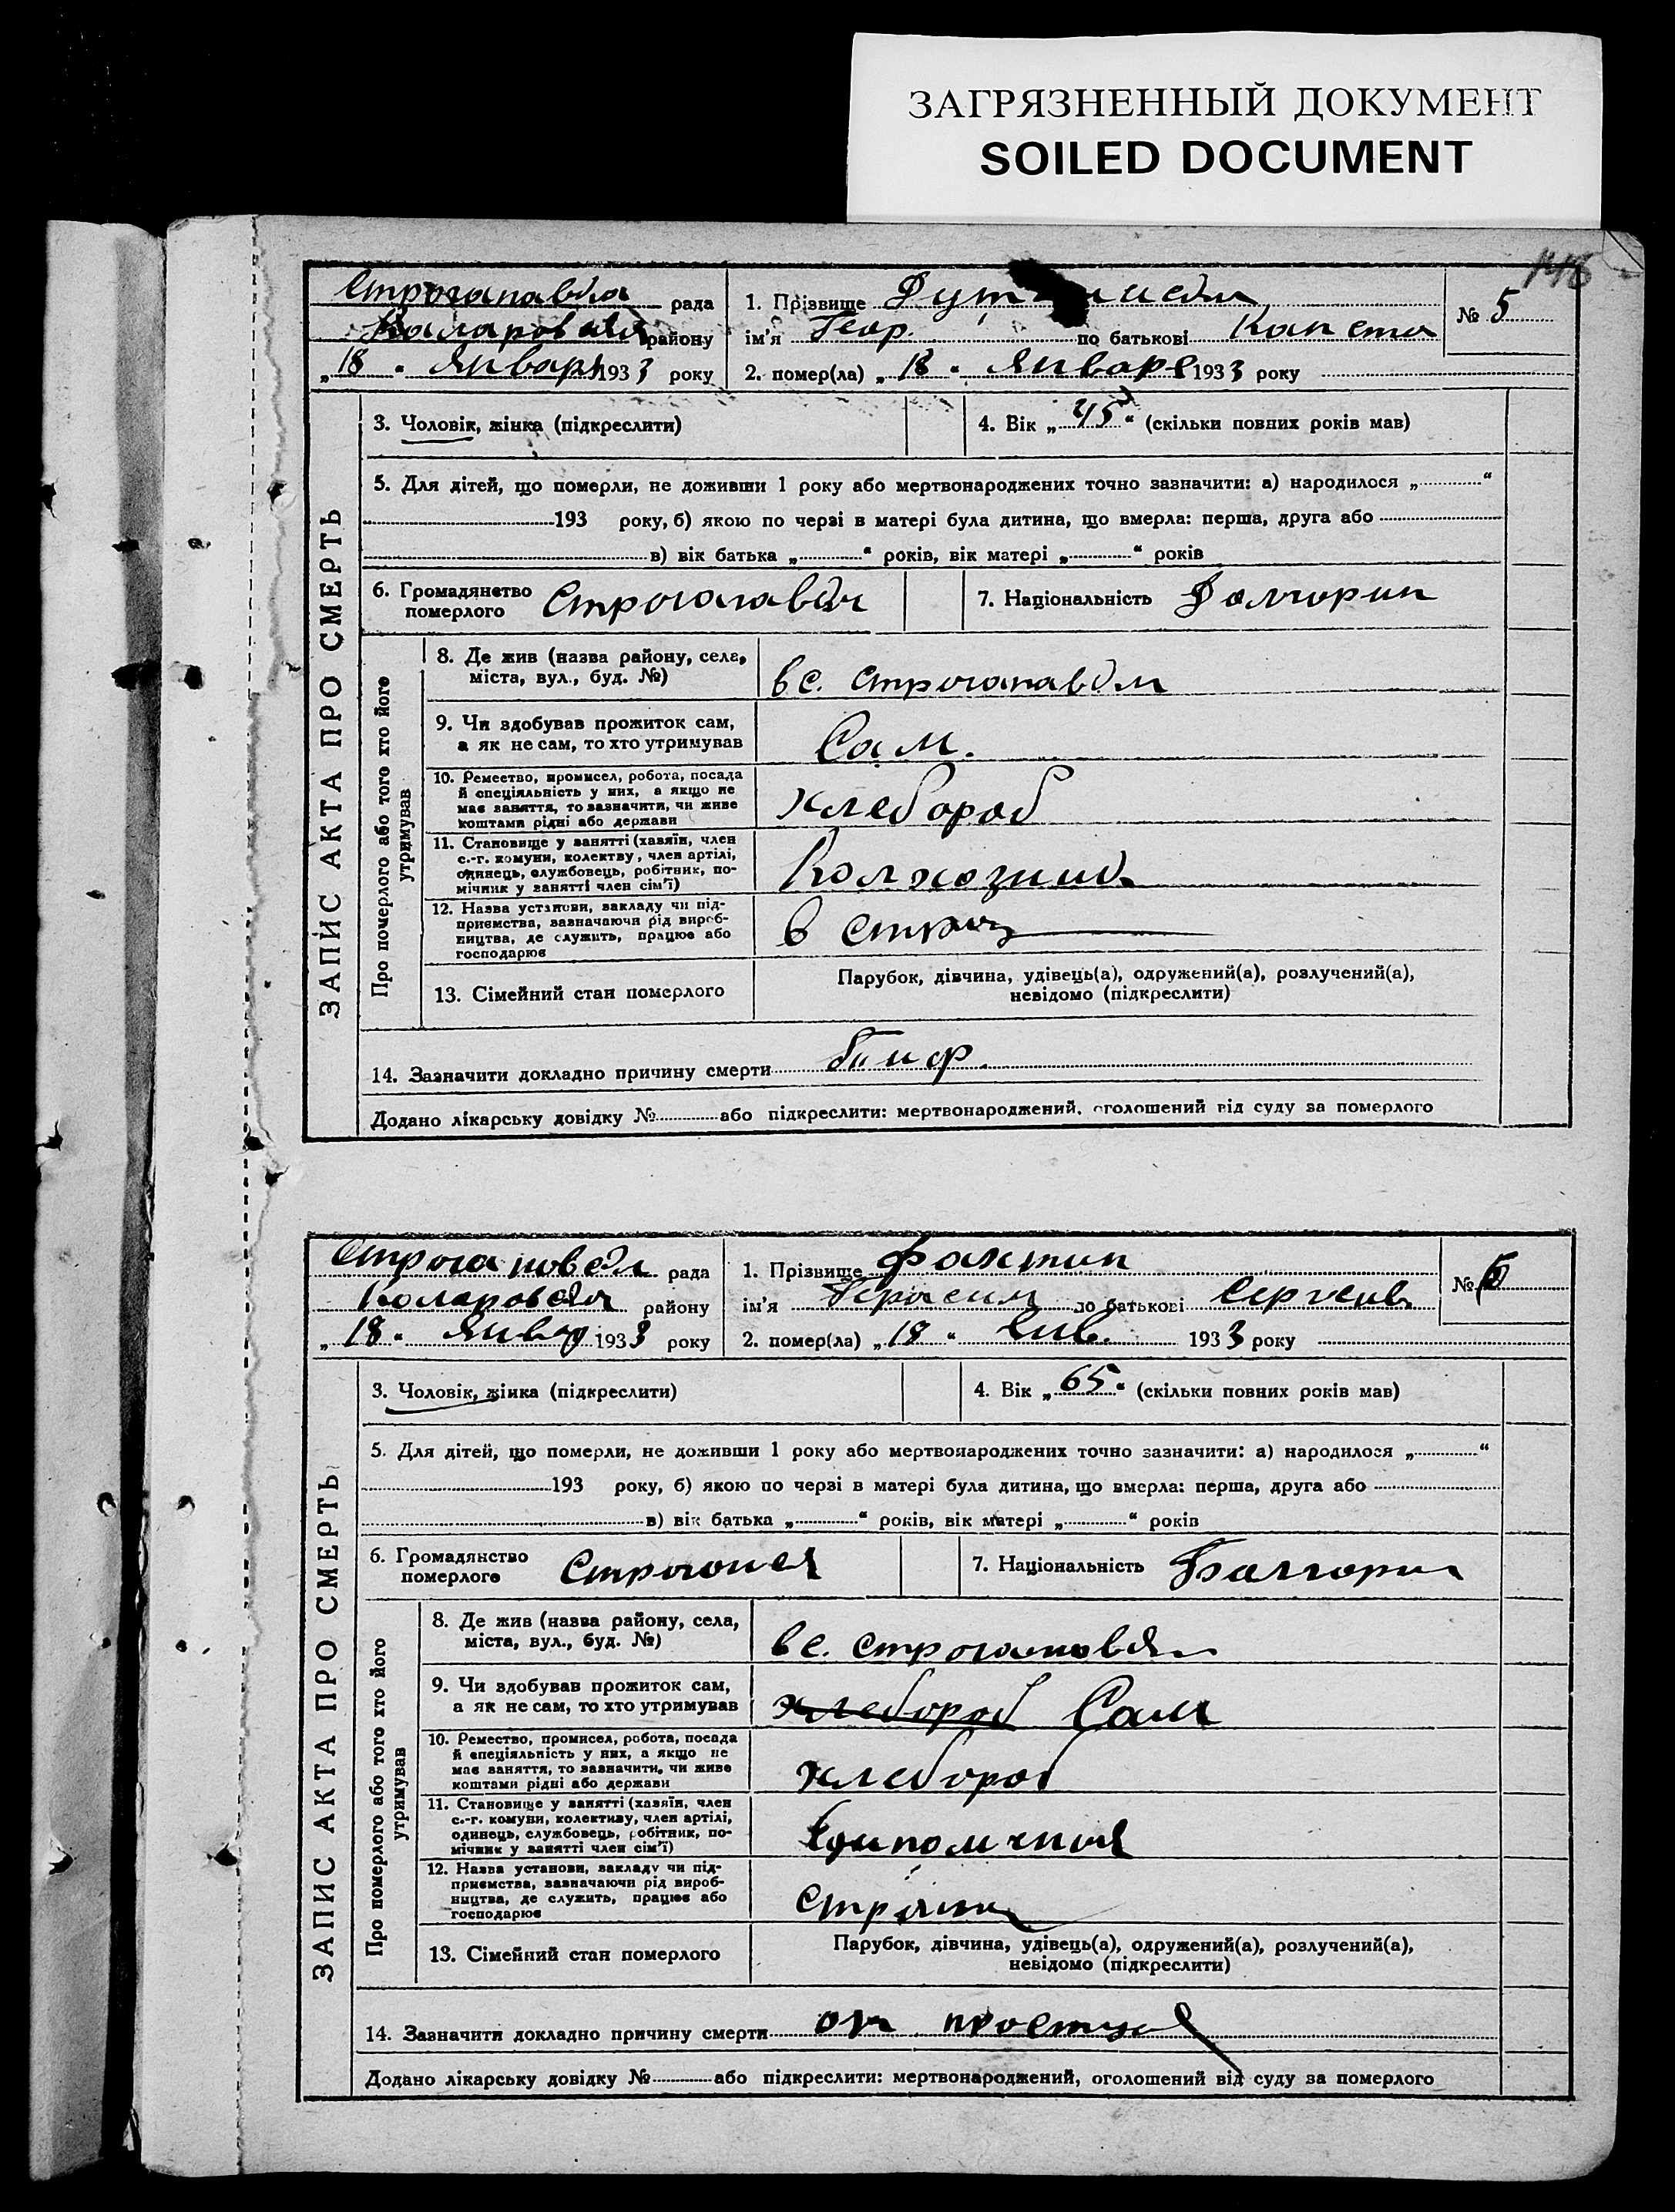 ЗАГРЯЗНЕННЫЙ ДОКУМЕНТ
SOILED DOCUMENT
рада
району
„ 18 " Января 1933 року
1. Прізвище
ім'я Геор. по батькові
2. помер(ла) „ 18 " Января 1933 року
№ 5
ЗАПИС АКТА ПРО СМЕРТЬ
3. Чоловік, жінка (підкреслити)
4. Вік „ 45 " (скільки повних років мав)
5. Для дітей, що померли, не доживши 1 року або мертвонароджених точно зазначити: а) народилося „ "
193 року, б) якою по черзі в матері була дитина, що вмерла: перша, друга або
в) вік батька „ " років, вік матері „ " років
6. Громадянство
померлого
7. Національність
Про померлого або того хто його
утримував
8. Де жив (назва району, села,
міста, вул., буд. №)
в с.
9. Чи здобував прожиток сам,
а як не сам, то хто утримував
Сам.
10. Ремество, промисел, робота, посада
й спеціяльність у них, а якщо не
має заняття, то зазначити, чи живе
коштами рідні або держави
хлебороб
11. Становище у занятті (хазяїн, член
с.-г. комуни, колектву, член артілі,
одинець, службовець, робітник, по-
мічник у занятті член сім'ї)
12. Назва установи, закладу чи під-
приємства, зазначаючи рід вироб-
ництва, де служить, працює або
господарює
в
13. Сімейний стан померлого
Парубок, дівчина, удівець(а), одружений(а), розлучений(а),
невідомо (підкреслити)
14. Зазначити докладно причину смерти тиф.
Додано лікарську довідку № або підкреслити: мертвонароджений, оголошений від суду за померлого
рада
району
„ 18 " 1933 року
1. Прізвище
ім'я Герасим по батькові
2. помер(ла) „ 18 " Янв. 1933 року
№ 6
ЗАПИС АКТА ПРО СМЕРТЬ
3. Чоловік, жінка (підкреслити)
4. Вік „ 65 " (скільки повних років мав)
5. Для дітей, що померли, не доживши 1 року або мертвонароджених точно зазначити: а) народилося „ "
193 року, б) якою по черзі в матері була дитина, що вмерла: перша, друга або
в) вік батька „ " років, вік матері „ " років
6. Громадянство
померлого
7. Національність
Про померлого або того хто його
утримував
8. Де жив (назва району, села,
міста, вул., буд. №)
в с.
9. Чи здобував прожиток сам,
а як не сам, то хто утримував
хлебороб Сам
10. Ремество, промисел, робота, посада
й спеціяльність у них, а якщо не
має заняття, то зазначити, чи живе
коштами рідні або держави
хлебороб
11. Становище у занятті (хазяїн, член
с.-г. комуни, колективу, член артілі,
одинець, службовець, робітник, по-
мічник у занятті член сім'ї)
12. Назва установи, закладу чи під-
приємства, зазначаючи рід вироб-
ництва, де служить, працює або
господарює
13. Сімейний стан померлого
Парубок, дівчина, удівець(а), одружений(а), розлучений(а),
невідомо (підкреслити)
14. Зазначити докладно причину смерти от
Додано лікарську довідку № або підкреслити: мертвонароджений, оголошений від суду за померлого